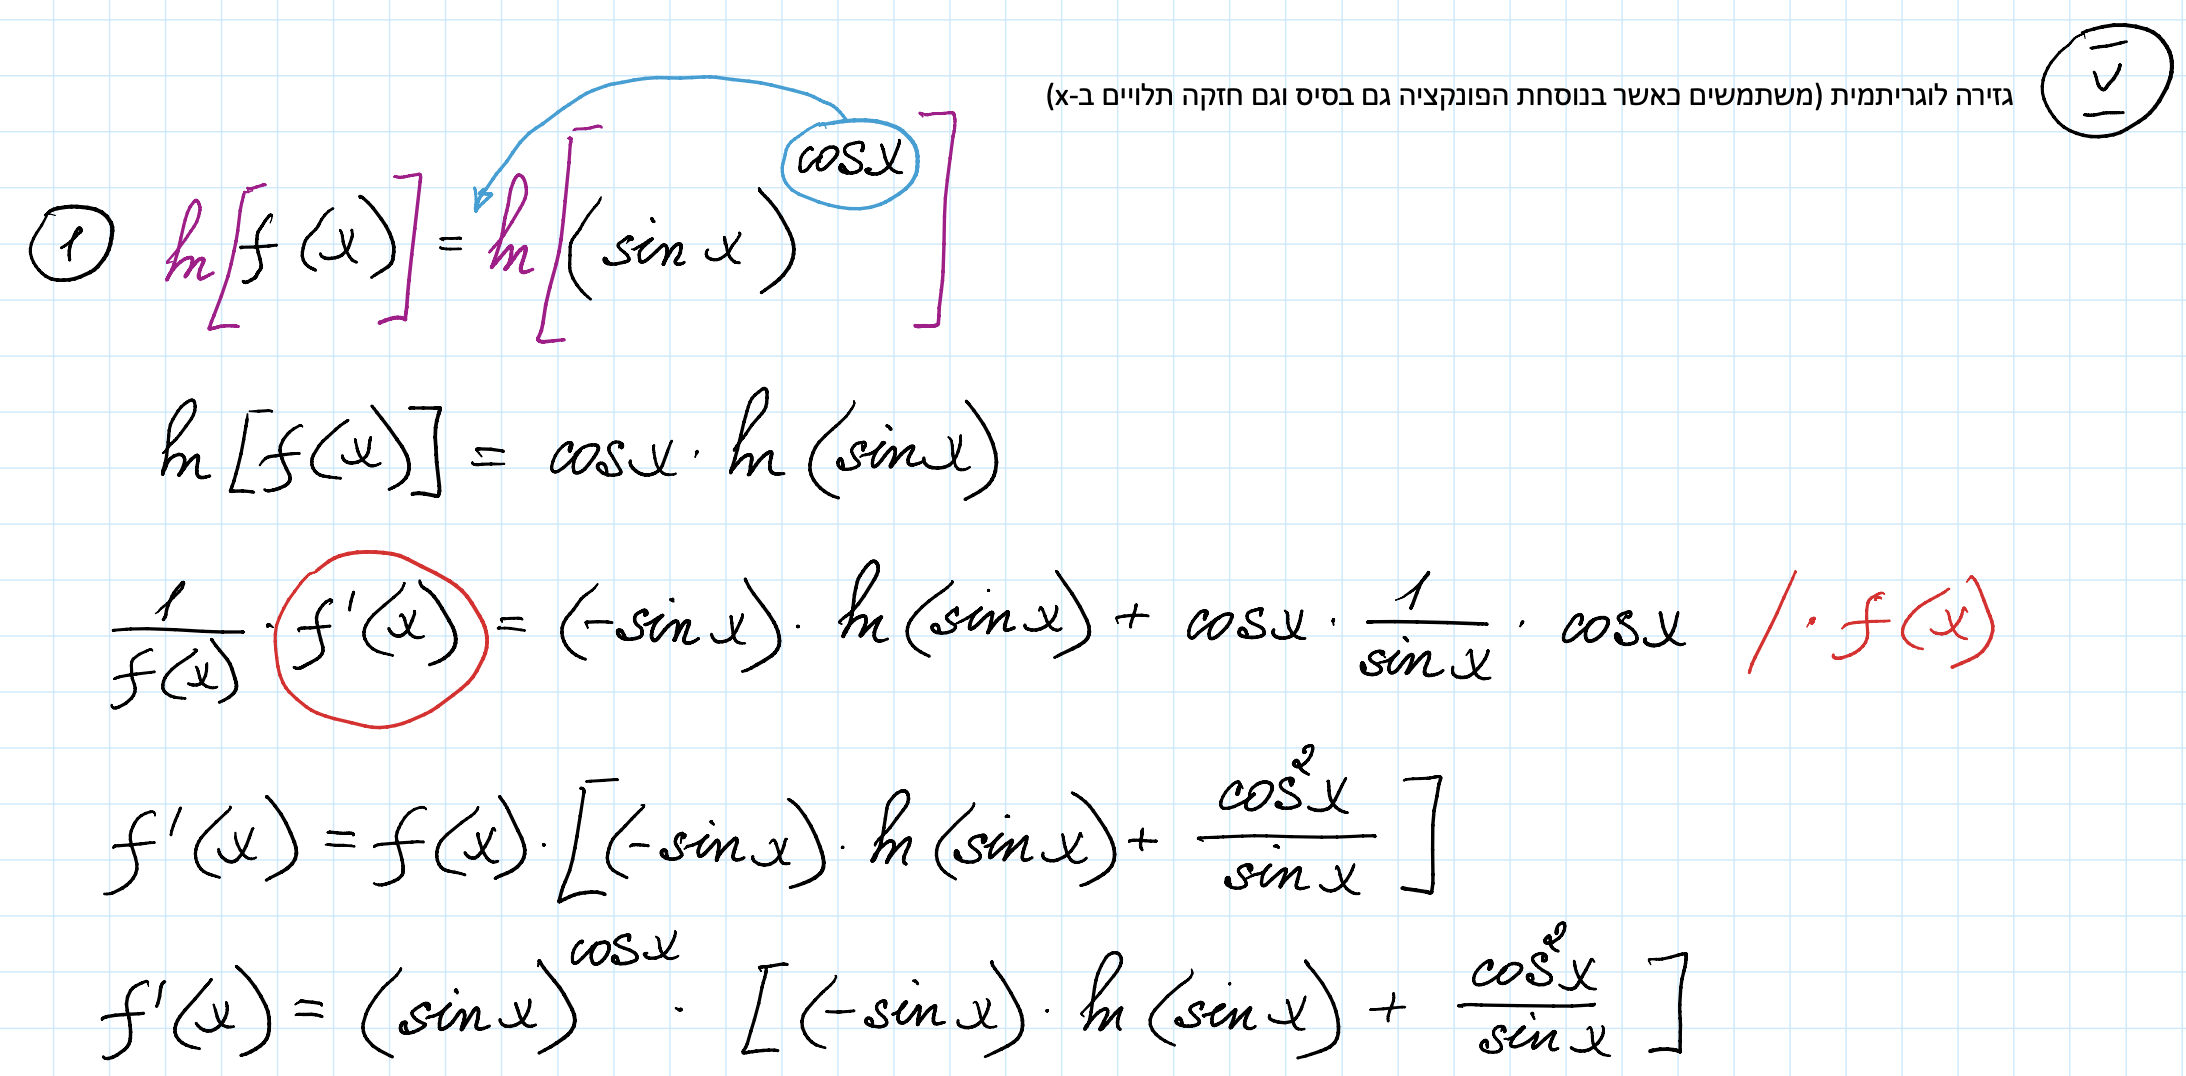 גזירה לוגריתמית (משתמשים כאשר בנוסחת הפונקציה גם בסיס וגם חזקה תלויים ב-x) V
1 ln[f(x)] = ln[(sin x)^cosx]
ln[f(x)] = cosx · ln(sinx)
1/f(x) · f'(x) = (-sin x) · ln(sin x) + cosx · 1/sin x · cosx / · f(x)
f'(x) = f(x) · [(-sin x) · ln(sin x) + cos²x/sin x]
f'(x) = (sin x)^cosx · [(-sin x) · ln(sin x) + cos²x/sin x]